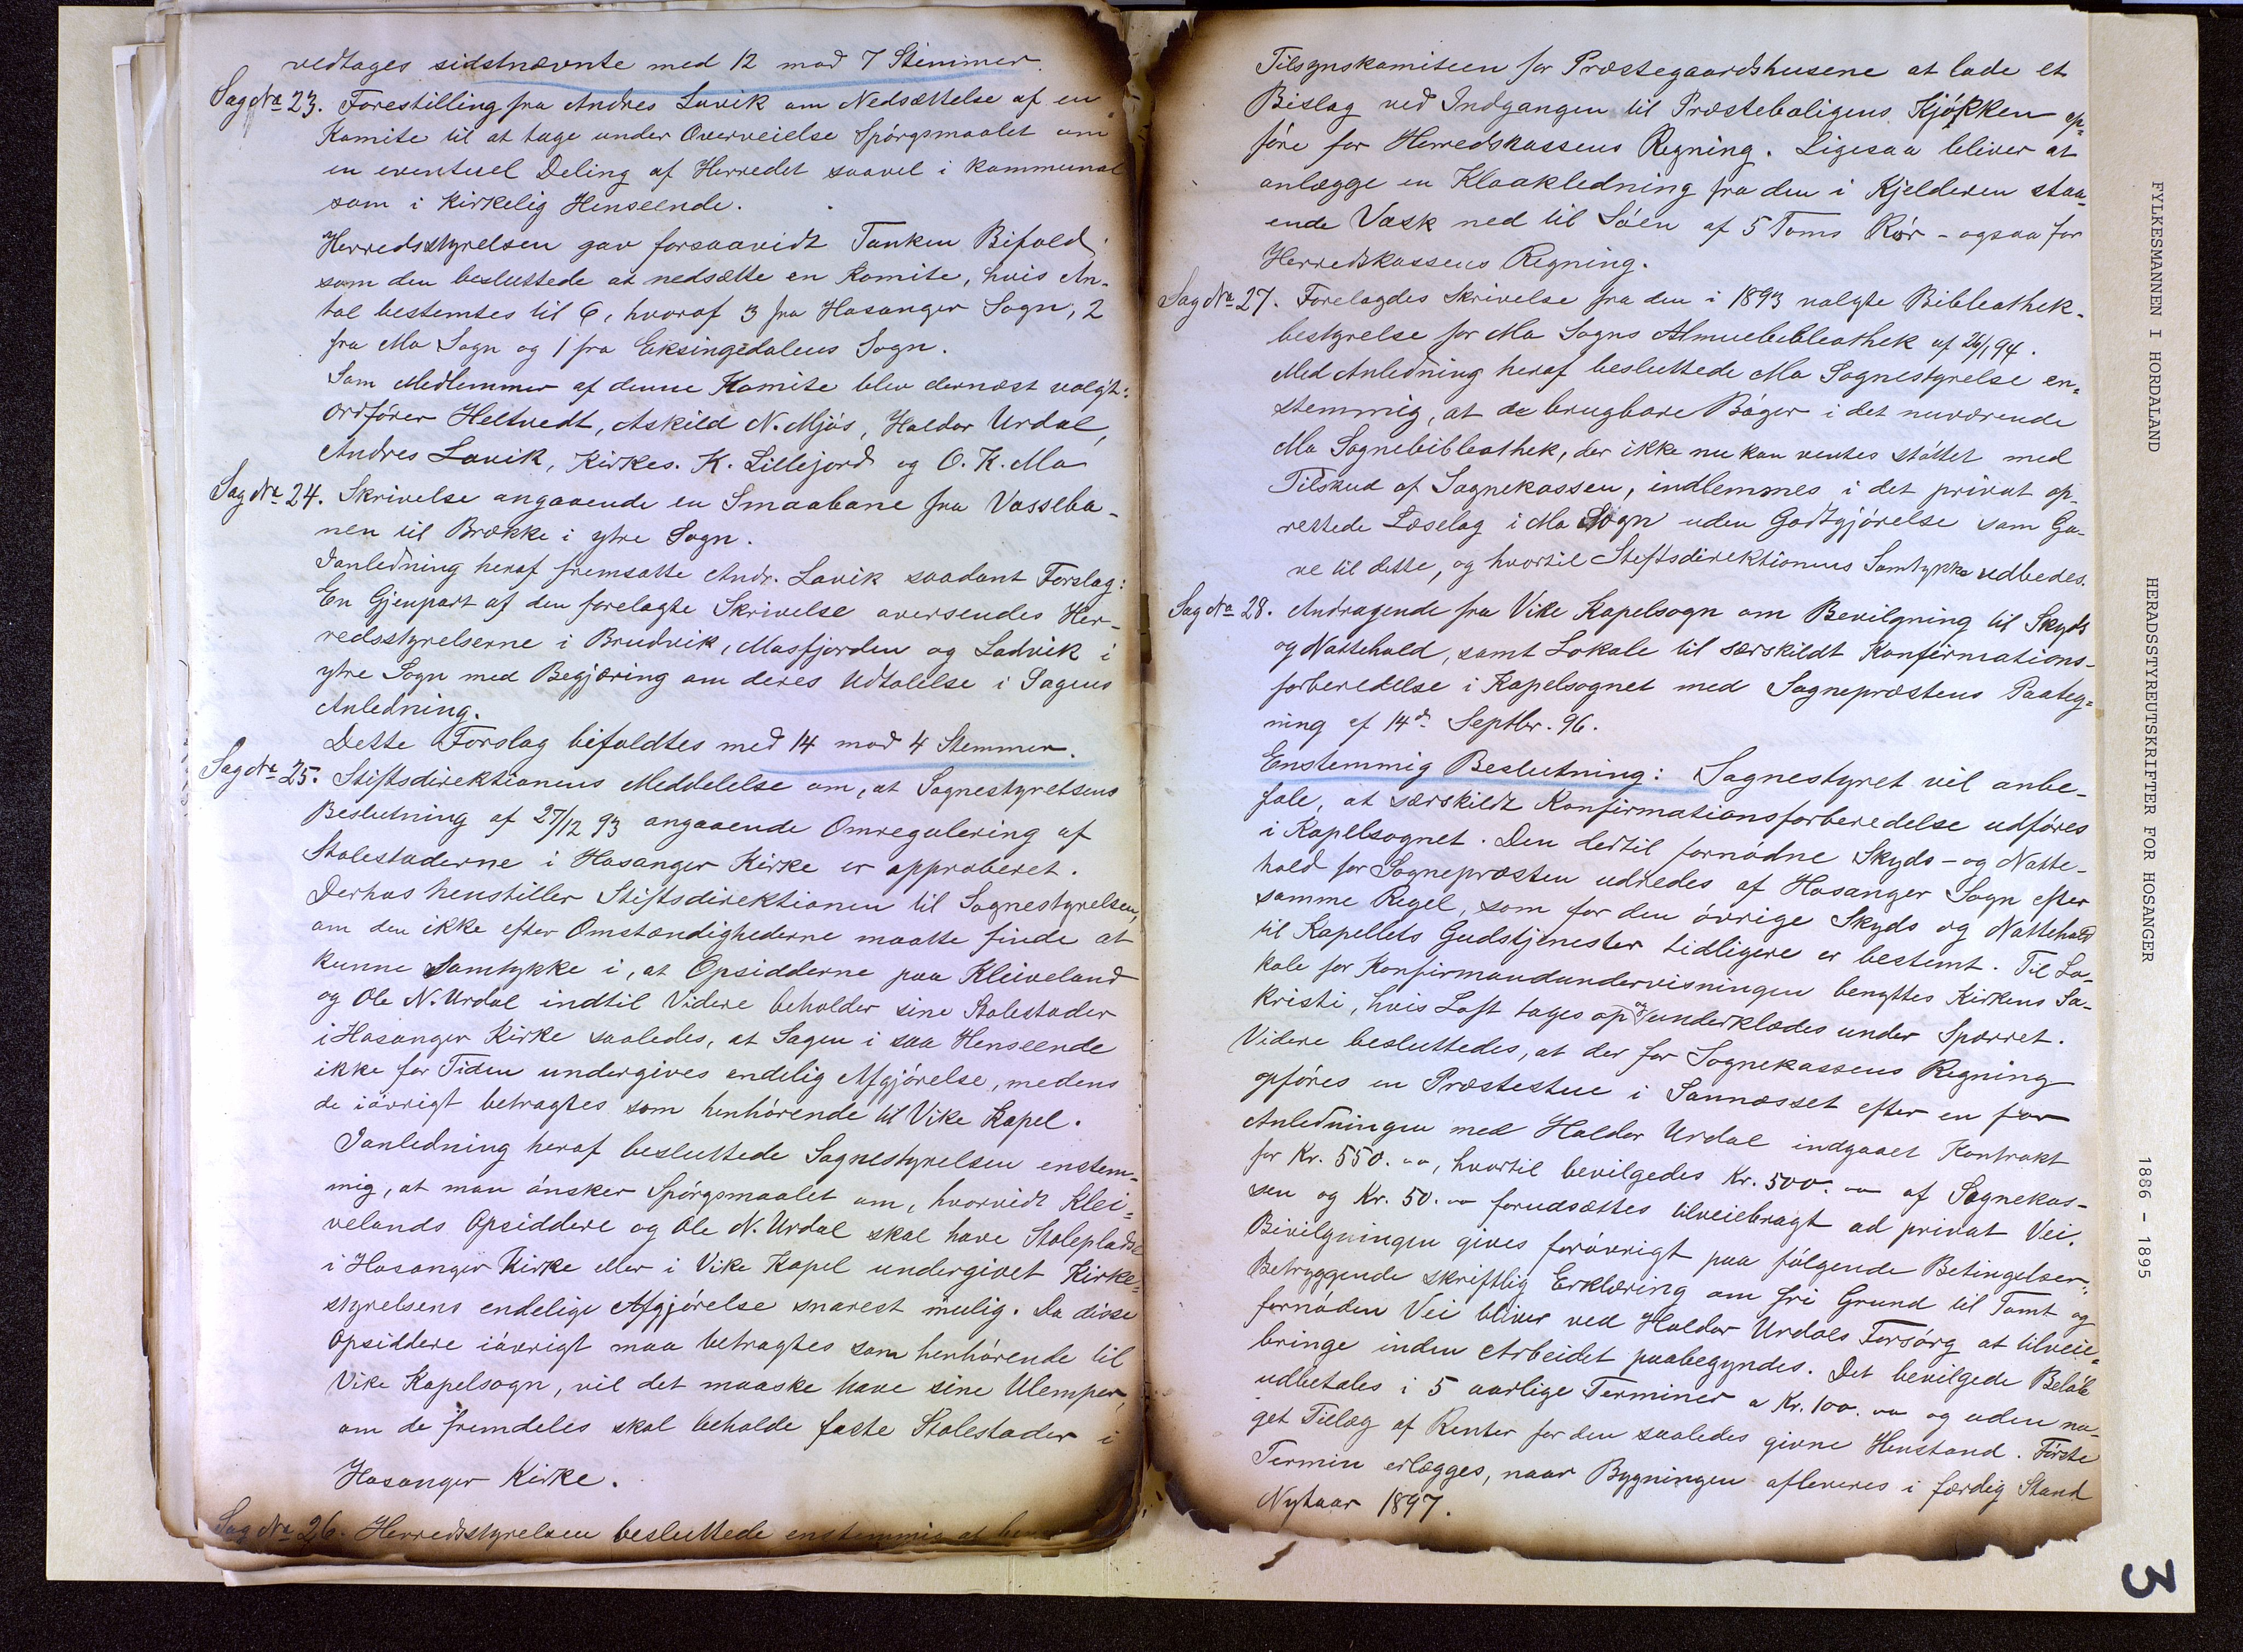 vedtages sidstnævnte med 12 mod 7 Stemmer.
Sag No 23. Forestilling fra Andres Lavik om Nedsættelse af en
Komite til at tage under Overveielse Spórgsmaalet om
en eventuel Deling af Herredet saavel i kommunal
som i kirkelig Henseende.
Herredsstyrelsen gav forsaavidt Tanken Bifald,
som den besluttede at nedsætte en Komite, hvis An-
tal bestemtes til 6, hvoraf 3 fra Hosanger Sogn, 2
fra Mo Sogn og 1 fra Eksingedalens Sogn.
Som Medlemmer af denne Komite blev dernæst valgt:
Ordfórer Heltvedt, Askild N. Mjós, Haldor Urdal,
Andres Lavik, Kirkes. K. Lillejord og O. K. Mo
Sag No 24. Skrivelse angaaende en Smaabane fra Vosseba-
nen til Brække i ytre Sogn.
Ianledning heraf fremsatte Andr. Lavik saadant Forslag:
En Gjenpart af den forelagte Skrivelse oversendes Her-
redsstyrelserne i Brudvik, Masfjorden og Ladvik i
ytre Sogn med Begjæring om deres Udtalelse i Sagens
Anledning.
Dette Forslag bifaldtes med 14 mod 4 Stemmer.
Sag No 25. Stiftsdirektionens Meddelelse om, at Sognestyrelsens
Beslutning af 27/12 93 angaaende Omregulering af
Stolestaderne i Hosanger Kirke er approberet.
Derhos henstiller Stiftsdirektionen til Sognestyrelsen,
om den ikke efter Omstændighederne maatte finde at
kunne Samtykke i, at Opsidderne paa Kleiveland
og Ole N. Urdal indtil Videre beholder sine Stolestader
i Hosanger Kirke saaledes, at Sagen i saa Henseende
ikke for Tiden undergives endelig Afgjórelse, medens
de ióvrigt betragtes som henhórende til Vike Kapel.
Ianledning heraf besluttede Sognestyrelsen enstem-
mig, at man ónsker Spórgsmaalet om, hvorvidt Klei-
velands Opsiddere og Ole N. Urdal skal have Stoleplads
i Hosanger Kirke eller i Vike Kapel undergivet Kirke-
styrelsens endelige Afgjórelse snarest mulig. Da disse
Opsiddere ióvrigt maa betragtes som henhórende til
Vike Kapelsogn, vil det maaske have sine Ulemper,
om de fremdeles skal beholde faste Stolestader i
Hosanger Kirke.
Sag No 26. Herredsstyrelsen besluttede enstemmig at
Tilsynskomiteen for Præstegaardshusene at lade et
Bislag ved Indgangen til Præsteboligens Kjókken op-
fóre for Herredskassens Regning. Ligesaa bliver at
anlægge en Kloakledning fra den i Kjelderen staa-
ende Vask ned til Sóen af 5 Toms Rór - ogsaa for
Herredskassens Regning.
Sag No 27. Forelagdes Skrivelse fra den i 1893 valgte Bibleothek-
bestyrelse for Mo Sogns Almuebibleothek af 26/1 94.
Med Anledning heraf besluttede Mo Sognestyrelse en-
stemmig, at de brugbare Bóger i det nuværende
Mo Sognebibleothek, der ikke nu kan ventes stóttet med
Tilskud af Sognekassen, indlemmes i det privat op-
rettede Læselag i Mo Sogn uden Godtgjórelse som Ga-
ve til dette, og hvortil Stiftsdirektionens Samtykke udbedes.
Sag No 28. Andragende fra Vike Kapelsogn om Bevilgning til Skyds
og Nattehold, samt Lokale til særskildt Konfirmations-
forberedelse i Kapelsognet med Sognepræstens Paateg-
ning af 14d Septbr. 96.
Enstemmig Beslutning: Sognestyret vil anbe-
fale, at særskildt Konfirmationsforberedelse udfóres
i Kapelsognet. Den dertil fornódne Skyds- og Natte-
hold for Sognepræsten udredes af Hosanger Sogn efter
samme Regel, som for den óvrige Skyds og Nattehold
til Kapellets Gudstjenester tidligere er bestemt. Til Lo-
kale for Konfirmandundervisningen benyttes Kirkens Sa-
kristi, hvis Loft tages op og underklædes under Sparret.
Videre besluttedes, at der for Sognekassens Regning
opfóres en Præstestue i Sannæsset efter en for
Anledningen med Haldor Urdal indgaaet Kontrakt
for Kr. 550.00, hvortil bevilgedes Kr. 500.00 af Sognekas-
sen og Kr. 50.00 forudsættes tilveiebragt ad privat Vei.
Bevilgningen gives foróvrigt paa fólgende Betingelser:
Betryggende skriftlig Erklæring om fri Grund til Tomt og
fornóden Vei bliver ved Haldor Urdals Forsórg at tilveie-
bringe inden Arbeidet paabegyndes. Det bevilgede Belób
udbetales i 5 aarlige Terminer a Kr. 100.00 og uden no-
get Tillæg af Renter for den saaledes givne Henstand. Fórste
Termin erlægges, naar Bygningen afleveres i færdig Stand
Nytaar 1897.
FYLKESMANNEN I HORDALAND HERADSSTYREUTSKRIFTER FOR HOSANGER 1886 - 1895
3